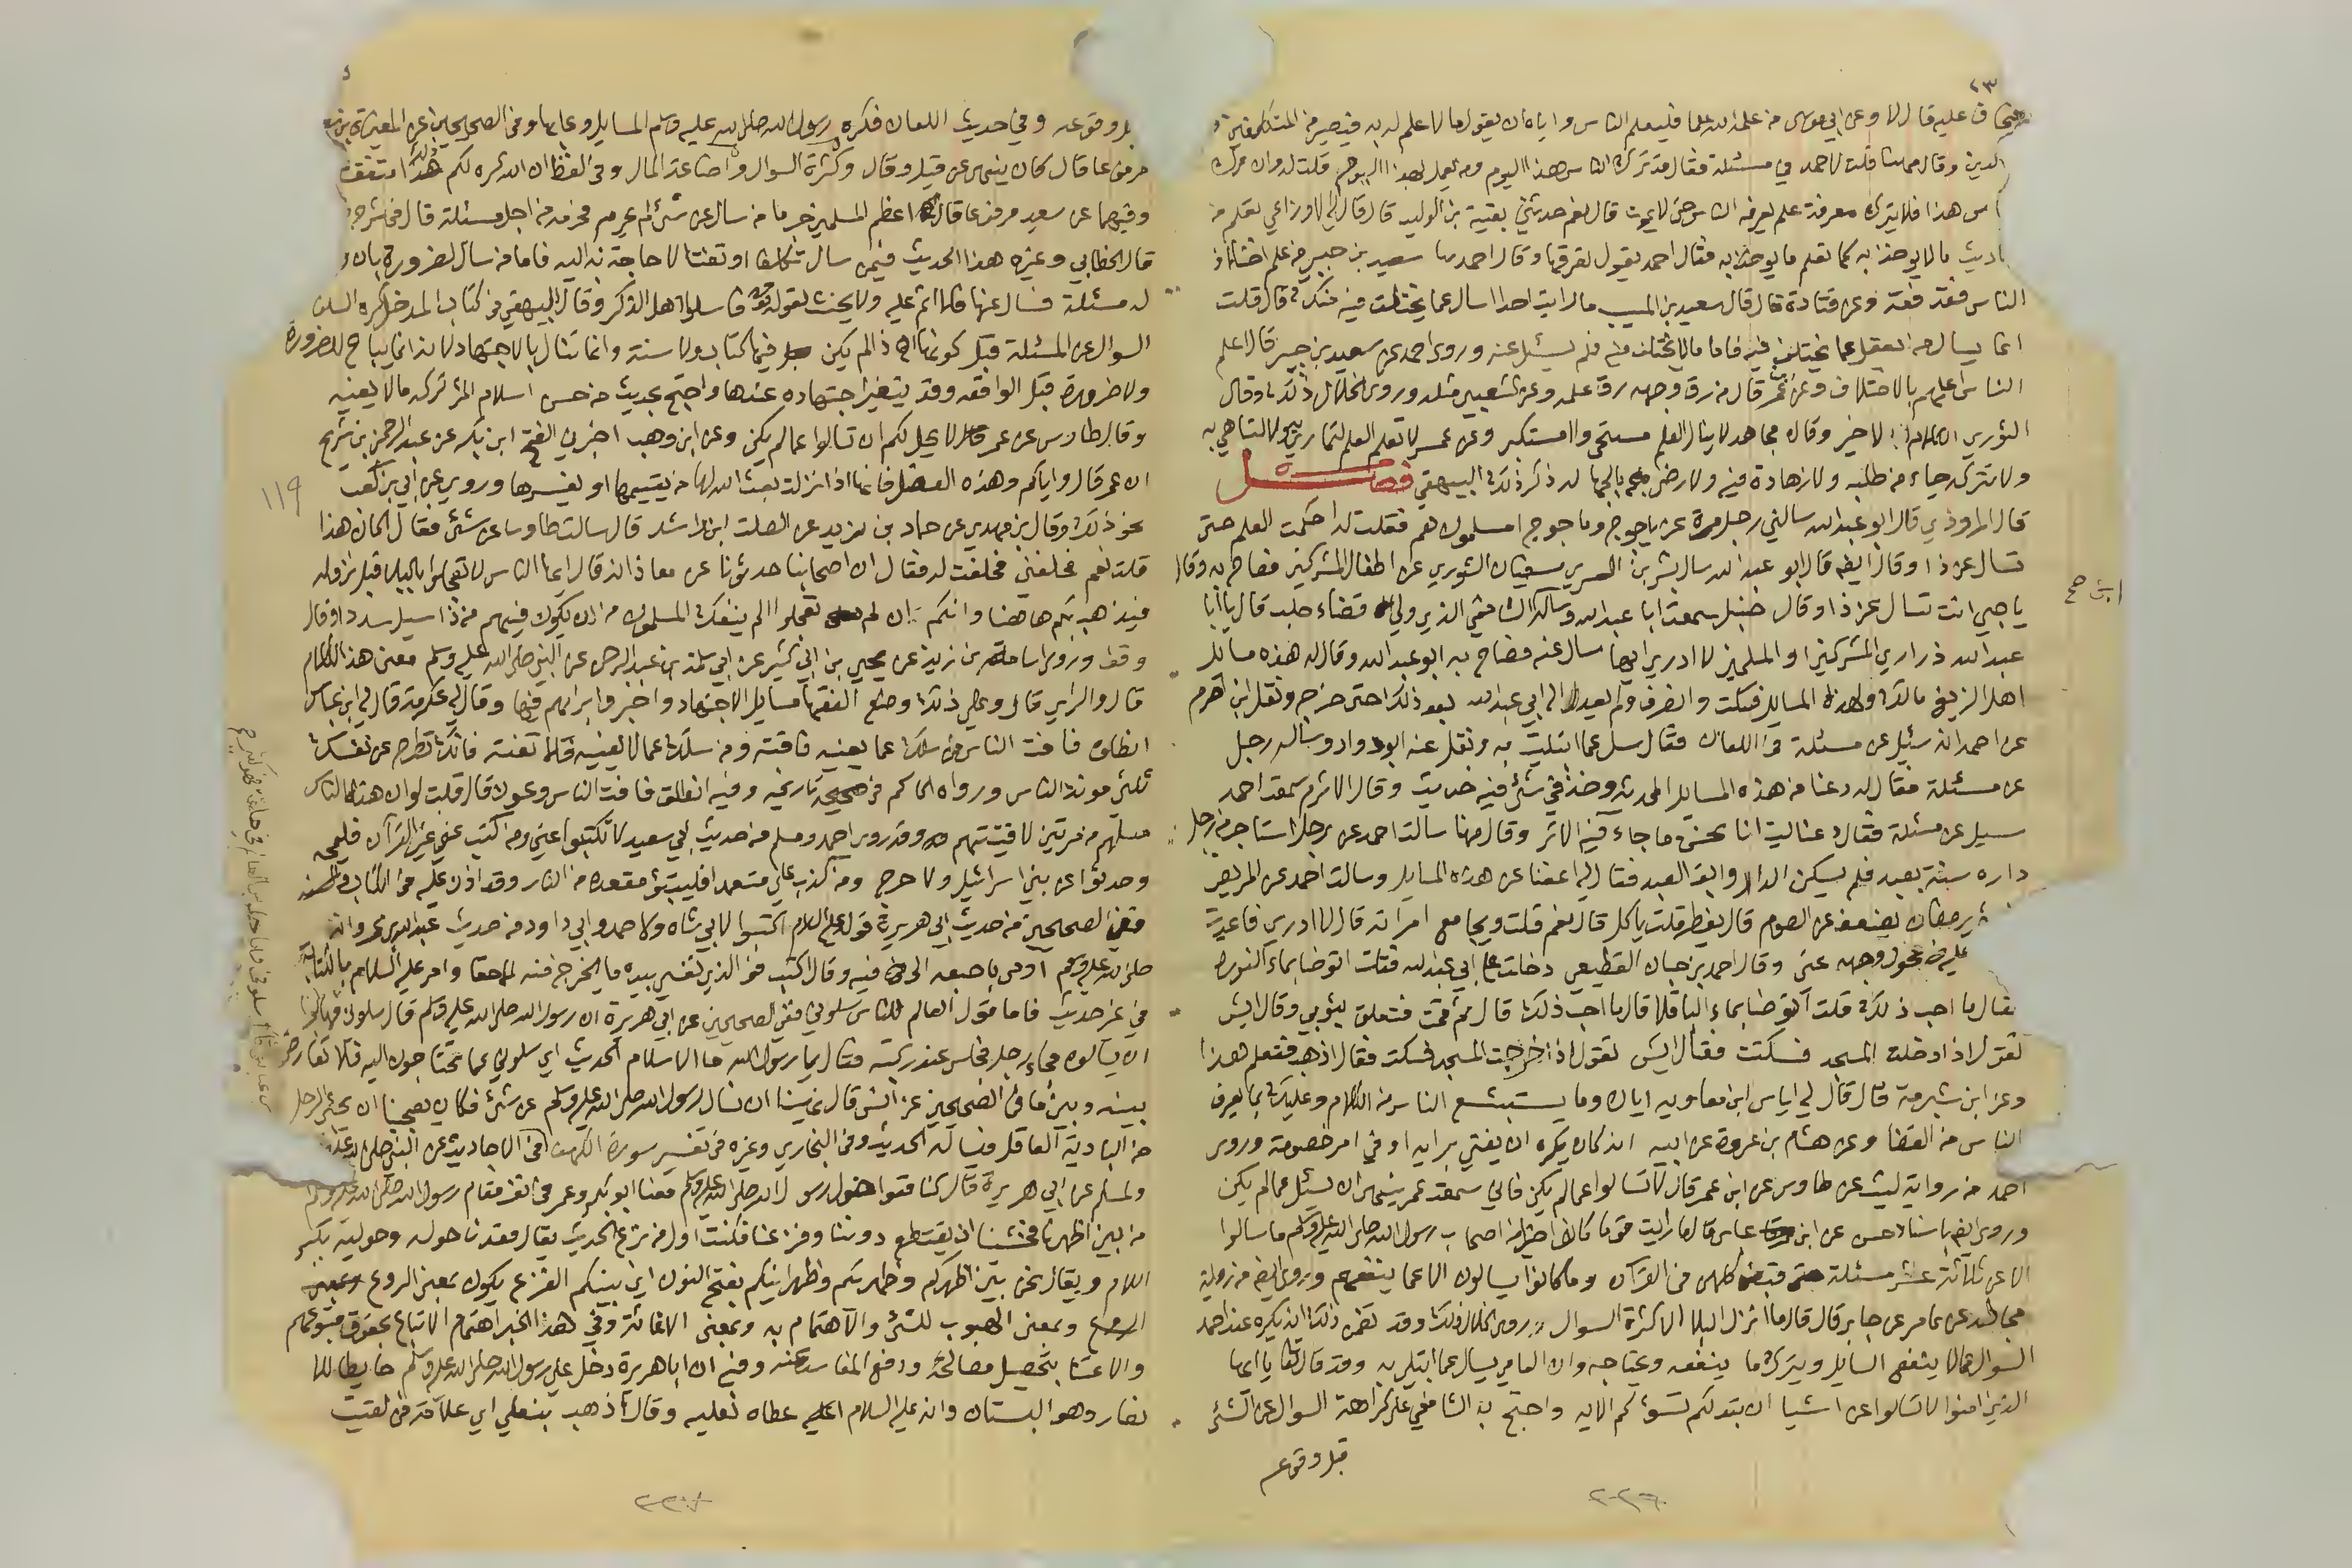 ٢٣
عليه قال لا وعن ابي موسى من علمه الله علما فليعلم الناس واياه ان يقول ما لا علم له به فيصير من المتكلفين
الدين وقال مهنا قلت لاحمد في مسئلة فقال قد ترك الناس هذا اليوم ومن يعمل بهذا اليوم قلت له وان ترك
س هذا فلا يترك معرفة علم يعرفه الناس حتى لا يموت قال نعم حدثني بقية بن الوليد قال قال لي الاوزاعي تعلم من
ما لا يوخذ به كما تعلم ما يوخذ به فقال احمد يقول تعرفها وقال احمد سعيد بن جبير من علم اختلاف
الناس فقد فقه وعن قتادة قال قال سعيد بن المسيب ما رايت احدا سال عما يختلف فيه منك قال قلت
انما يسال من العقل عما يختلف فيه فاما ما لا يختلف فيه فلم يسئل عنه وروى احمد عن سعيد بن جبير قال اعلم
الناس اعلمهم بالاختلاف وعن عمر قال من رق وجهه رق علمه وعن الشعبي مثله وروى الخلال ذلك وقال
الثوري لا خير وقال مجاهد لا ينال العلم مستحي ولا مستكبر وعن عمر لا تعلم العلم لتماري به ولا لتباهي به
ولا تتركه حياء من طلبه ولا زهادة فيه ولا رضى بالجهالة ذكر ذلك البيهقي فصل
قال المروذي قال ابو عبد الله سالني رجل مرة عن ياجوج وماجوج امسلمون هم فقلت له احكمت العلم حتى
تسال عن ذا وقال ايضا قال ابو عبد الله سال بشر بن السري سفيان الثوري عن اطفال المشركين فصاح به وقال
يا صبي انت تسال عن ذا وقال حنبل سمعت ابا عبد الله وساله ابن الشافعي الذي ولي قضاء حلب قال يا ابا
عبد الله ذراري المشركين او المسلمين لا ادري ايهما سال عنه فصاح به ابو عبد الله وقال له هذه مسايل
اهل الزيغ مالك ولهذه المسايل فسكت وانصرف ولم يعد الى ابي عبد الله بعد ذلك حتى خرج ونقل ابن اصرم
عن احمد انه سئل عن مسئلة في اللعان فقال سل عما ابتليت به ونقل عنه ابو داود وساله رجل
عن مسئلة فقال له دعنا من هذه المسايل المحدثة وخذ في شئ فيه حديث وقال الاثرم سمعت احمد
سيل عن مسئلة فقال دعنا ليت انا نحسن ما جاء فيه الاثر وقال مهنا سالت احمد عن رجل استاجر من رجل
داره سنة بعبد فلم يسكن الدار وابق العبد فقال لي اعفنا عن هذه المسايل وسالت احمد عن المريض
رمضان يضعف عن الصوم قال يفطر قلت ياكل قال نعم قلت ويجامع امراته قال لا ادري فاعدت
عليه فحول وجهه عني وقال احمد بن حبان القطيعي دخلت على ابي عبد الله فقلت اتوضا بماء النورة
فقال ما احب ذلك قلت اتوضا بماء الباقلا قال ما احب ذلك قال ثم قمت فتعلق بثوبي وقال ايش
تقول اذا دخلت المسجد فسكت فقال ايش تقول اذا خرجت المسجد فسكت فقال اذهب فتعلم هذا
وعن ابن شبرمة قال قال لي اياس ابن معاوية اياك وما يستبشع الناس من الكلام وعليك بما يعرف
الناس من القضا وعن هشام بن عروة عن ابيه انه كان يكره ان يفتي برايه او في امر خصومة وروى
احمد من رواية ليث عن طاوس عن ابن عمر قال لا تسالوا عما لم يكن فاني سمعت عمر ينهى ان يسئل عما لم يكن
وروى ايضا باسناد حسن عن ابن عباس قال ما رايت قوما كانوا خيرا من اصحاب رسول الله صلى الله عليه وسلم ما سالوا
الا عن ثلاثة عشر مسئلة حتى قبض كلهن في القرآن وما كانوا يسالون الا عما ينفعهم وروى ايضا من رواية
مجالد عن عامر عن جابر قال قال ما انزل البلا الا كثرة السوال وروى الخلال ذلك وقد تضمن ذلك انه يكره عند احمد
السوال عما لا ينفع السايل ويترك ما ينفعه ويحتاجه وان العامي يسال عما ابتلي به وقد قال تعالى يا ايها
الذين امنوا لا تسالوا عن اشيا ان تبد لكم تسؤكم الايه واحتج به الشافعي على كراهة السوال عن الشئ
قبل وقوعه
٢٢٦
قبل وقوعه وفي حديث اللعان فكره رسول الله صلى الله عليه وسلم المسايل وعابها وفي الصحيحين عن المغيرة بن شعبة
مرفوعا قال كان ينهى عن قيل وقال وكثرة السوال واضاعة المال وفي لفظ ان الله كره لكم ذلك متفق
وفيهما عن سعيد مرفوعا قال اعظم المسلمين جرما من سال عن شئ لم يحرم فحرم من اجل مسئلته قال في شرح
قال الخطابي وغيره هذا الحديث فيمن سال تكلفا او تعنتا لا حاجة به اليه فاما من سال لضرورة بان
له مسئلة فسال عنها فلا اثم عليه ولا يحنث لقوله تعالى فاسالوا اهل الذكر وقال البيهقي في كتاب المدخل كره السلف
السوال عن المسئلة قبل كونها اذا لم يكن فيها كتاب ولا سنة وانما تنال بالاجتهاد لانه انما يباح للضرورة
ولا ضرورة قبل الواقعة وقد يتغير اجتهاده عندها واحتج بحديث من حسن اسلام المرء تركه ما لا يعنيه
وقال طاوس عن عمر لا يحل لكم ان تسالوا عما لم يكن وعن ابن وهب اخبرني الفتح ابن بكر عن عبد الرحمن بن شريح
ان عمر قال واياكم وهذه العضل فانها اذا نزلت بعث الله لها من يقيمها او يفسرها وروي عن ابي بن كعب
نحو ذلك وقال ابن مهدي عن حماد بن يزيد عن الصلت ابن راشد قال سالت طاوسا عن شئ فقال اكان هذا
قلت نعم فحلفني فحلفت له فقال ان اصحابنا حدثونا عن معاذ انه قال ايها الناس لا تعجلوا بالبلا قبل نزوله
فيذهب بكم هاهنا وانكم ان لم تعجلوا لم ينفك المسلمون من ان يكون فيهم من اذا سيل سدد او قال
وفق وروى اسامة بن زيد عن يحيى بن ابي كثير عن ابي سلمة بن عبد الرحمن عن النبي صلى الله عليه وسلم معنى هذا الكلام
قال والراي قال وعلى ذلك وضع الفقها مسايل الاجتهاد واخبروا برايهم فيها وقال لي عكرمة قال لي ابن عباس
انطلق فافت الناس فمن سالك عما يعنيه فافته ومن سالك عما لا يعنيه فلا تفته فانك تطرح عن نفسك
ثلثي مونة الناس ورواه الحاكم في صحيحه تاريخه وفيه انطلق فافت الناس وعون قال قلت لو ان هذا الناس
مثلهم مرتين لافتيتهم وقد روى احمد ومسلم من حديث ابي سعيد لا تكتبوا عني ومن كتب عني غير القرآن فليمحه
وحدثوا عن بني اسرائيل ولا حرج ومن كذب علي متعمدا فليتبوأ مقعده من النار وقد اذن عليه في الكتاب
ففي الصحيحين من حديث ابي هريرة قوله عليه السلام اكتبوا لابي شاه ولاحمد وابي داود من حديث عبد الله بن عمرو انه
صلى الله عليه وسلم اومى باصبعه الى فيه وقال اكتب فو الذي نفسي بيده ما يخرج منه الا حقا وامر عليه السلام بالكتابة
في غير حديث فاما قول العالم للناس سلوني ففي الصحيحين عن ابي هريرة ان رسول الله صلى الله عليه وسلم قال سلوني فهابوا
ان يسالوه فجاء رجل فجلس عند ركبته فقال يا رسول الله ما الاسلام الحديث اي سلوني عما تحتاجون اليه فلا تعارض
بينه وبين ما في الصحيحين عن انس قال نهينا ان نسال رسول الله صلى الله عليه وسلم عن شئ فكان يعجبنا ان يجئ الرجل
من البادية العاقل فيساله الحديث وفي البخاري وغيره في تفسير سورة الكهف في الاحاديث عن النبي صلى الله عليه
ولمسلم عن ابي هريرة قال كنا قعودا حول رسول الله صلى الله عليه وسلم معنا ابو بكر وعمر في نفر فقام رسول الله صلى الله عليه وسلم
من بين اظهرنا فخشينا ان يقتطع دوننا وفزعنا فكنت اول من فزع الحديث يقال قعدنا حوله وحوليه بكسر
اللام ويقال نحن بين اظهركم وظهريكم وظهرانيكم بفتح النون اي بينكم الفزع يكون بمعنى الروع وبمعنى
وبمعنى الهبوب للشئ والاهتمام به وبمعنى الاغاثة وفي هذا الخبر اهتمام الاتباع بحقوق متبوعهم
والاعتنا بتحصيل مصالحه ودفع المفاسد عنه وفيه ان ابا هريرة دخل على رسول الله صلى الله عليه وسلم حايطا للا
نصار وهو البستان وانه عليه السلام اعطاه نعليه وقال اذهب بنعلي اي علامة فمن لقيت
١١٩
٢٢٧